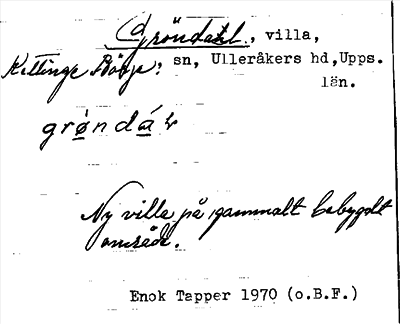 Gröndahl, villa,
Kättinge Börje, sn, Ulleråkers hd, Upps.
län.
grö̀ndá̱l
Ny villa på gammalt bebyggt
område.
Enok Tapper 1970 (o.B.F.)